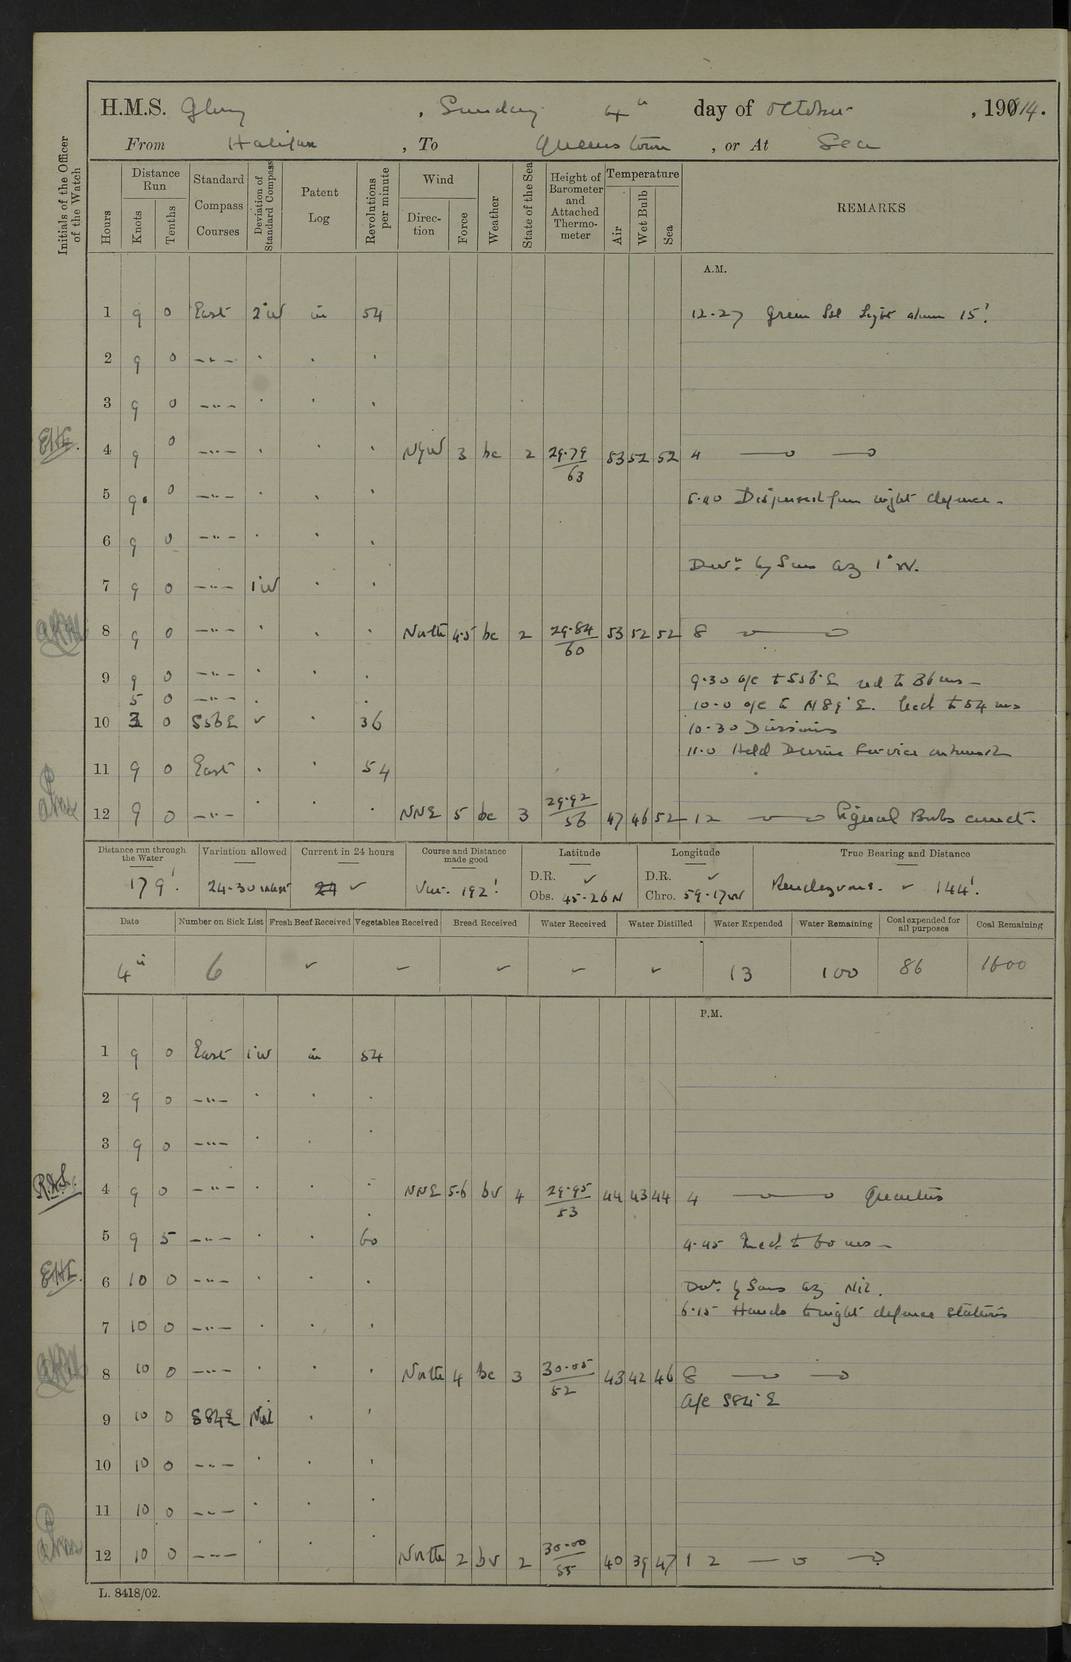 H.M.S. Glory , Sunday 4th day of October , 1914.
From Halifax , To Queenstown , or At Sea
Initials of the Officer of the Watch
Hours
Distance Run
Knots
Tenths
Standard Compass Courses
Deviation of Standard Compass
Patent Log
Revolutions per minute
Wind
Direction
Force
Weather
State of the Sea
Height of Barometer and Attached Thermometer
Temperature
Air
Wet Bulb
Sea
REMARKS
A.M.
1 9 0 East 2°W in 54 12.27 Green Light 15'.
2 9 0 — " —
3 9 0 — " —
4 9 0 — " — NyW 3 bc 2 29.79 / 63 53 52 52 4 —o —o
5 9 0 — " — 5.40 Dispersed from night defence.
6 9 0 — " —
Devn. by Sun az 1°W.
7 9 0 — " — 1°W
8 9 0 — " — North 4.5 bc 2 29.84 / 60 53 52 52 8 —o —o
9 9 0 — " — 9.30 a/c to S5b°E red to 36
5 0 — " — 10.0 a/c to N89°E. Incd to 54
10 3 0 S5bE ✓ 36 10.30 Divisions
11.0 Held Divine Service
11 9 0 East 54
12 9 0 — " — NNE 5 bc 3 29.92 / 56 47 46 52 12 —o —o
Distance run through the Water
179'.
Variation allowed
24-30 West
Current in 24 hours
✓
Course and Distance made good
Var. 192'
Latitude
D.R. ✓
Obs. 45-26 N
Longitude
D.R. ✓
Chro. 59-17 W
True Bearing and Distance
Rendezvous. ✓ 144'.
Date Number on Sick List Fresh Beef Received Vegetables Received Breed Received Water Received Water Distilled Water Expended Water Remaining Coal expended for all purposes Coal Remaining
4th 6 ✓ — ✓ — ✓ 13 100 86 1600
P.M.
1 9 0 East 1°W in 54
2 9 0 — " —
3 9 0 — " —
R.A.L. 4 9 0 — " — NNE 5.6 bv 4 29.95 / 53 44 43 44 4 —o —o Quarters
5 9 5 — " — 60 4.45 Incd to 60
6 10 0 — " — Devn. by Suns az Nil.
6.15 Hands to night defence stations
7 10 0 — " —
8 10 0 — " — North 4 bc 3 30.05 / 52 43 42 46 8 —o —o
a/c S84°E
9 10 0 S84E Nil
10 10 0 — " —
11 10 0 — " —
12 10 0 — " — North 2 bv 2 30.00 / 55 40 39 47 12 —o —o
L. 8418/02.